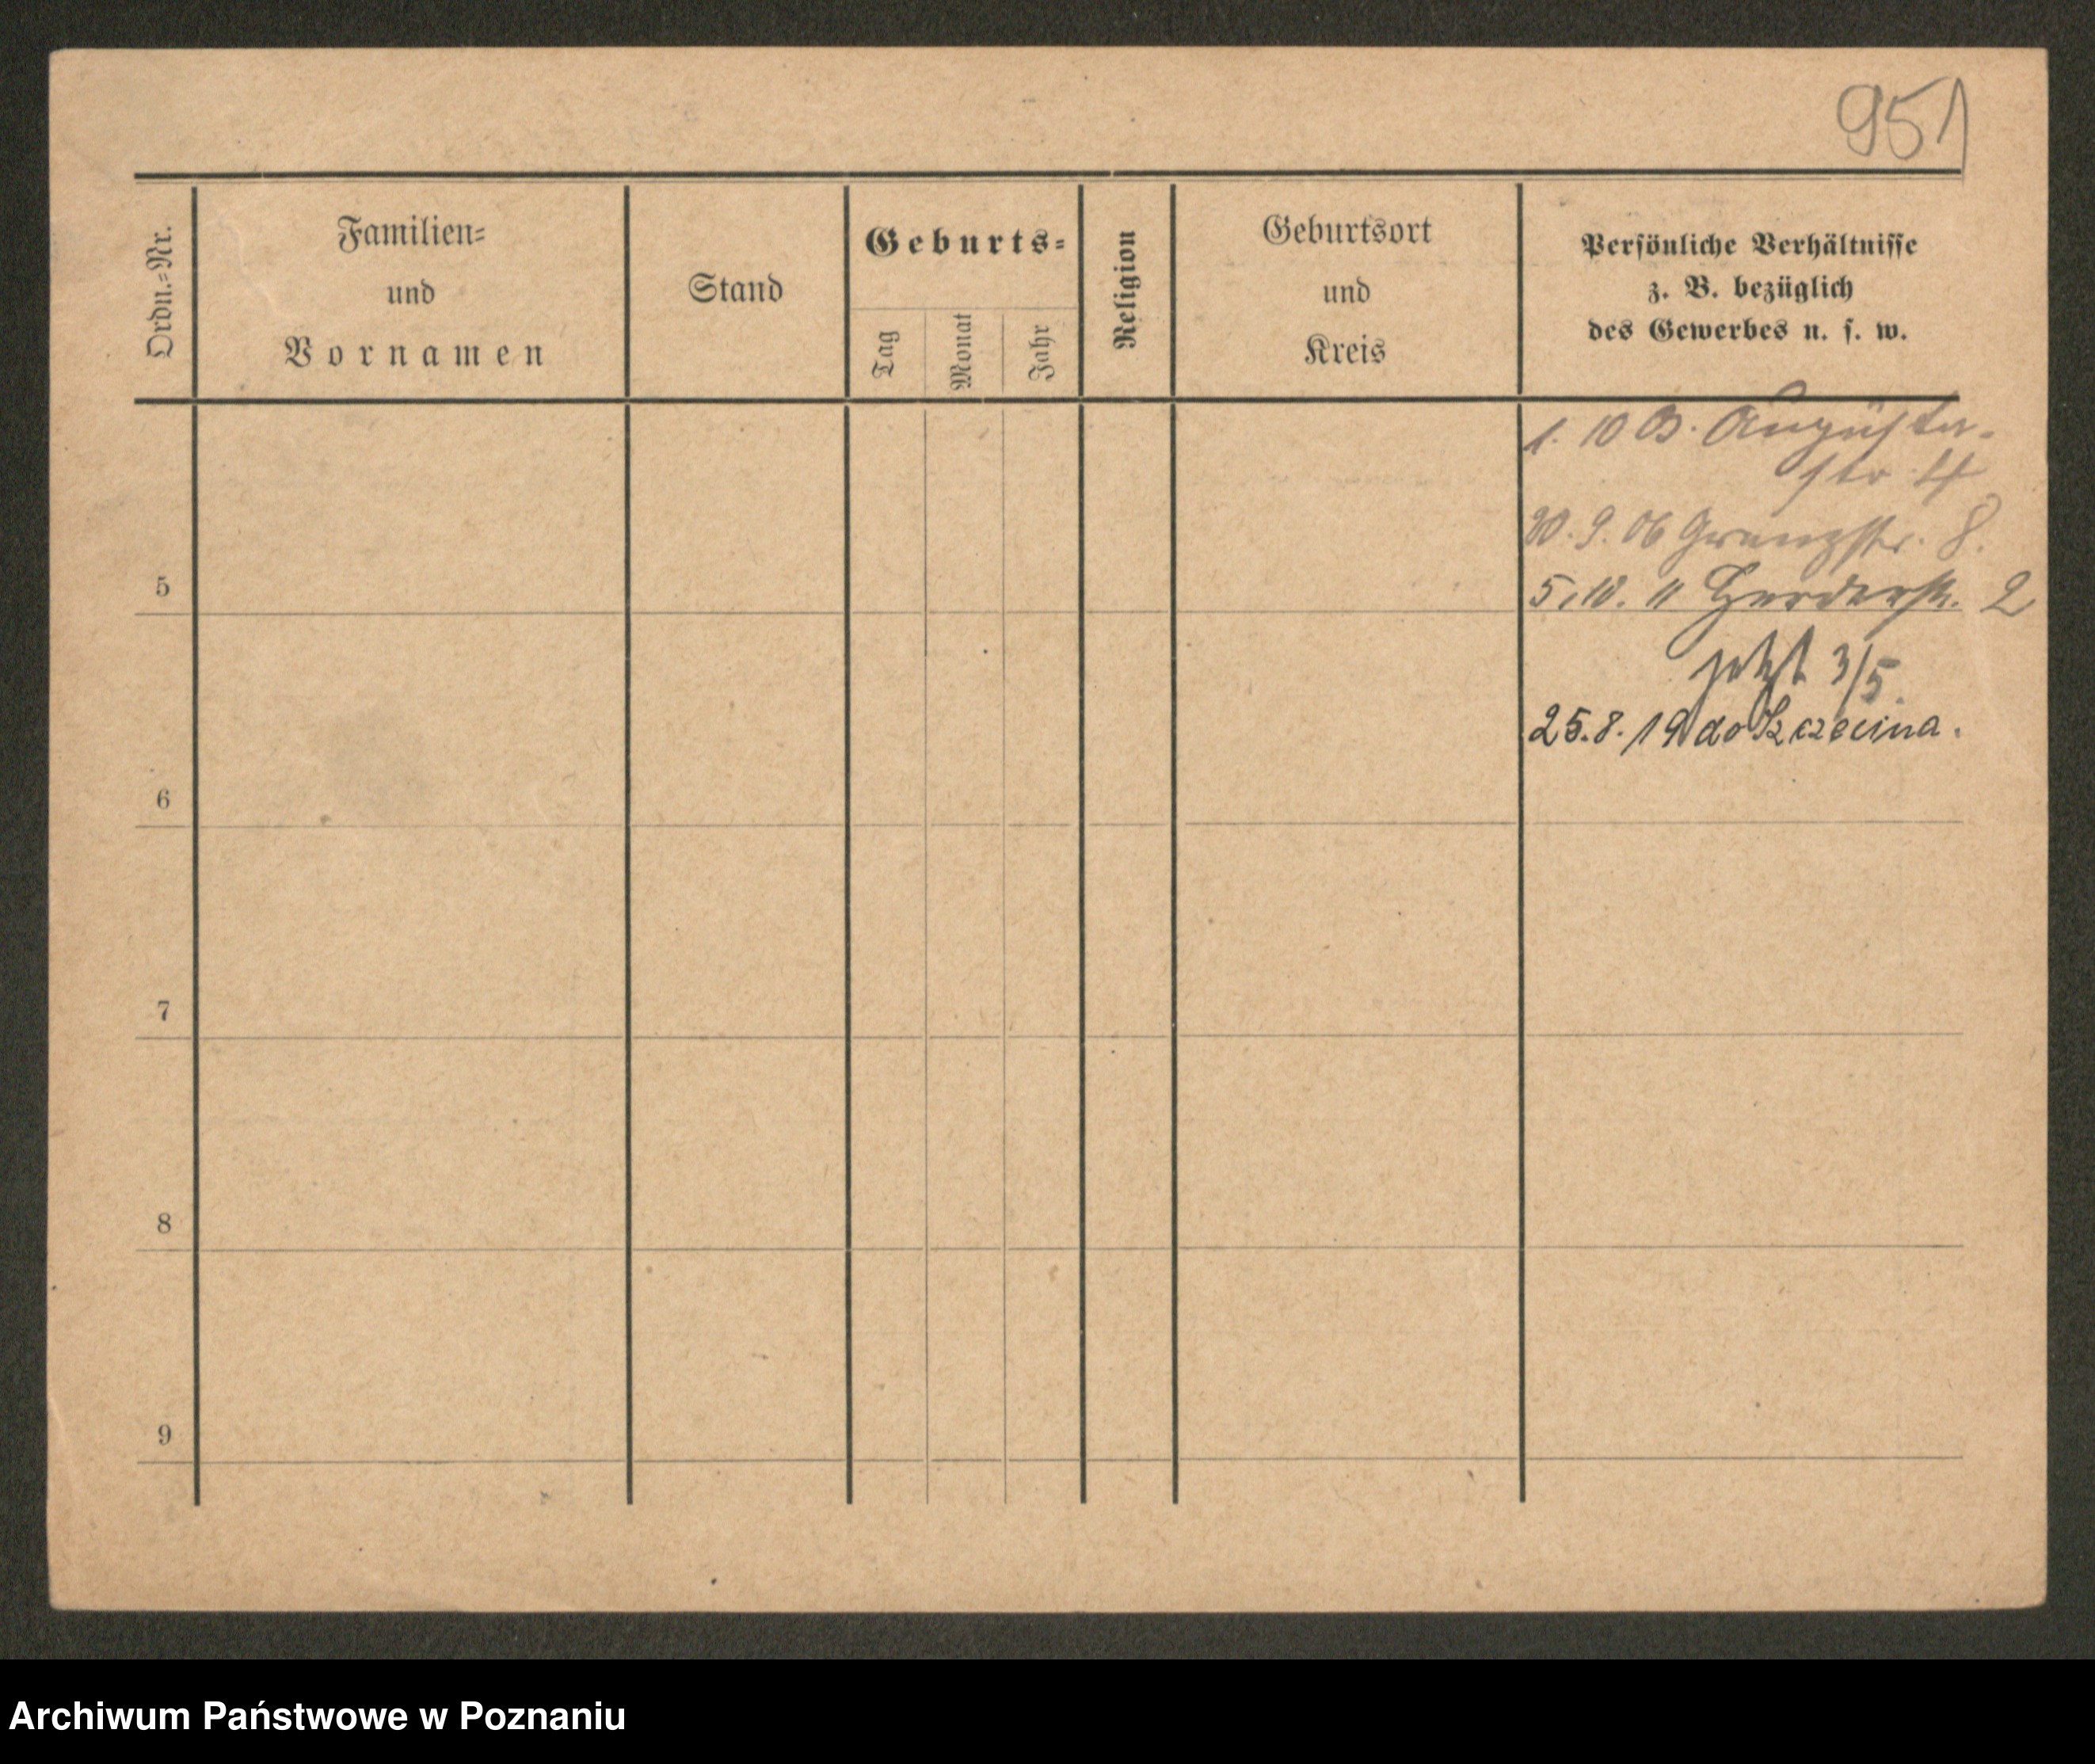 951
Ordn.=Nr.
Familien=
und
Vornamen
Stand
Geburts=
Tag
Monat
Jahr
Religion
Geburtsort
und
Kreis
Persönliche Verhältnisse
z. B. bezüglich
des Gewerbes u. s. w.
1. 10 03. Augusta-
str 4
5
20. 9. 06 Grenzstr. 8.
5. 10. 11 Herderstr. 2
jetzt 3/5.
25.8.19 do Szczecina.
6
7
8
9
Archiwum Państwowe w Poznaniu